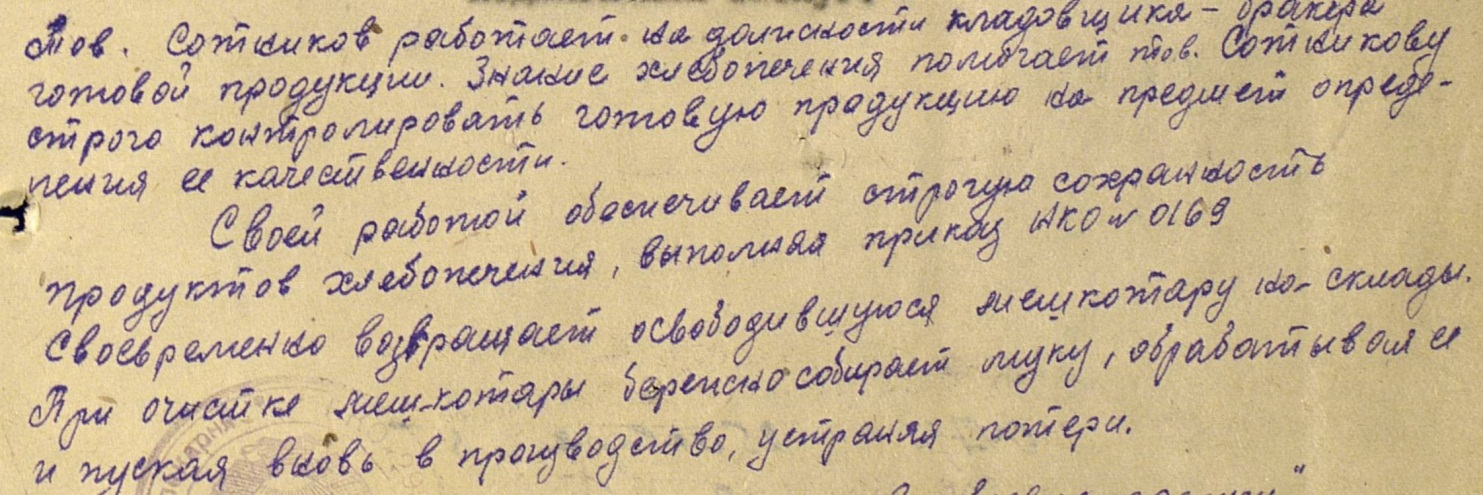 Тов. Сотников работает на должности кладовщика-бракера
готовой продукции. Знание хлебопечения помогает тов. Сотникову
строго контролировать готовую продукцию на предмет опреде-
ления ее качественности.
Своей работой обеспечивает строгую сохранность
продуктов хлебопечения, выполняя приказ НКО № 0169
Своевременно возвращает освободившуюся мешкотару на склады.
При очистке мешкотары бережно собирает муку, обрабатывая ее
и пуская вновь в производство, устраняя потери.